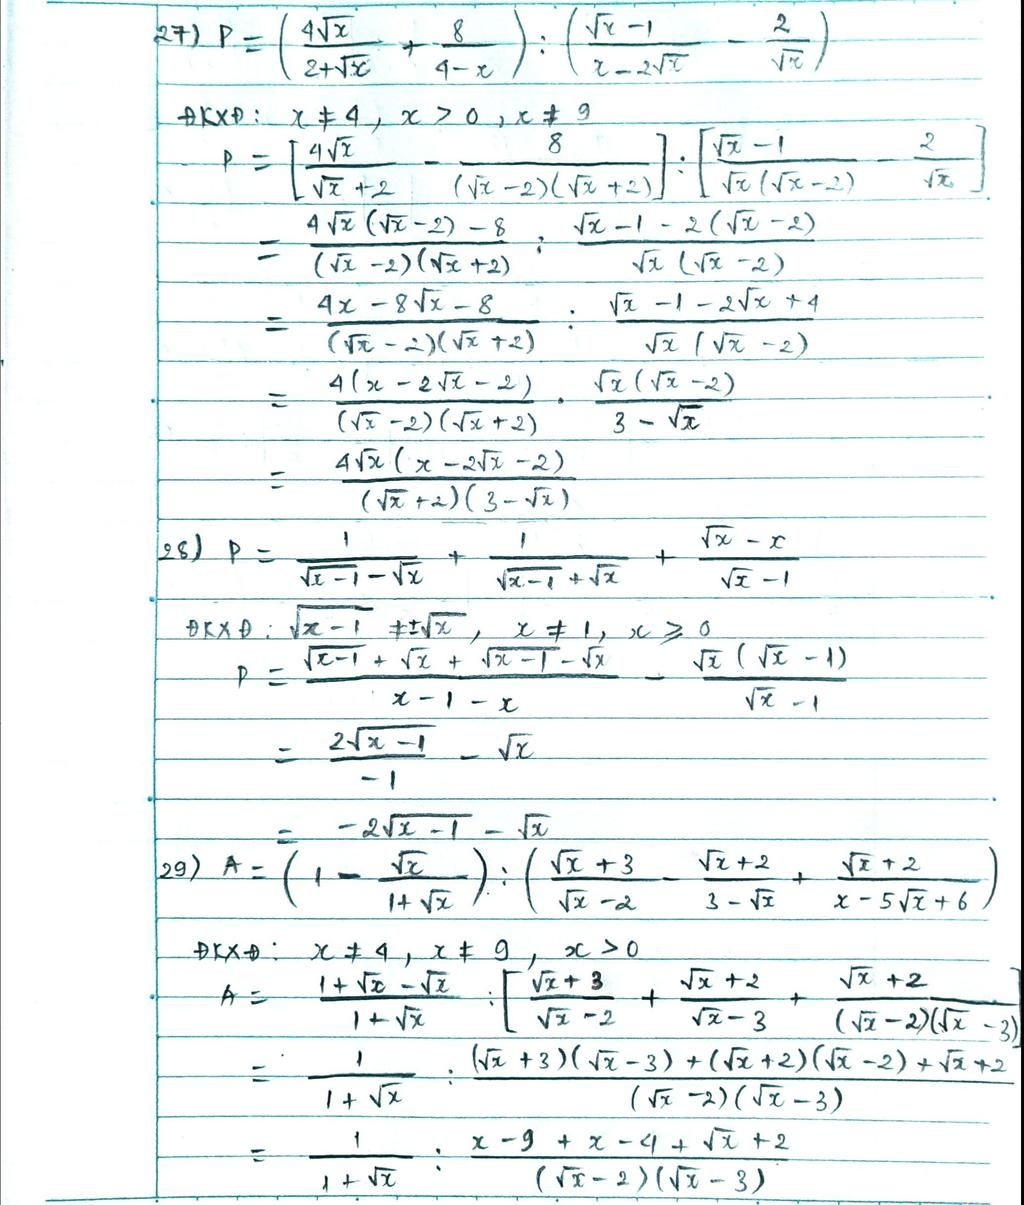 27) P = (4√x/(2+√x) + 8/(4-x)) : ((√x - 1)/(x - 2√x) - 2/√x)
ĐKXĐ: x ≠ 4, x > 0, x ≠ 9
P = [4√x/(√x + 2) - 8/((√x - 2)(√x + 2))] : [(√x - 1)/(√x(√x - 2)) - 2/√x]
= (4√x(√x - 2) - 8)/((√x - 2)(√x + 2)) : (√x - 1 - 2(√x - 2))/(√x(√x - 2))
= (4x - 8√x - 8)/((√x - 2)(√x + 2)) : (√x - 1 - 2√x + 4)/(√x(√x - 2))
= 4(x - 2√x - 2)/((√x - 2)(√x + 2)) . √x(√x - 2)/(3 - √x)
= 4√x(x - 2√x - 2)/((√x + 2)(3 - √x))
28) P = 1/(√(x-1) - √x) + 1/(√(x-1) + √x) + (√x - x)/(√x - 1)
ĐKXĐ: √(x-1) ≠ ±√x, x ≠ 1, x ⩾ 0
P = (√(x-1) + √x + √(x-1) - √x)/(x - 1 - x) - √x(√x - 1)/(√x - 1)
= 2√(x-1)/(-1) - √x
= -2√(x-1) - √x
29) A = (1 - √x/(1+√x)) : ((√x + 3)/(√x - 2) - (√x + 2)/(3 - √x) + (√x + 2)/(x - 5√x + 6))
ĐKXĐ: x ≠ 4, x ≠ 9, x > 0
A = (1 + √x - √x)/(1 + √x) : [(√x + 3)/(√x - 2) + (√x + 2)/(√x - 3) + (√x + 2)/((√x - 2)(√x - 3))]
= 1/(1 + √x) : ((√x + 3)(√x - 3) + (√x + 2)(√x - 2) + √x + 2)/((√x - 2)(√x - 3))
= 1/(1 + √x) : (x - 9 + x - 4 + √x + 2)/((√x - 2)(√x - 3))